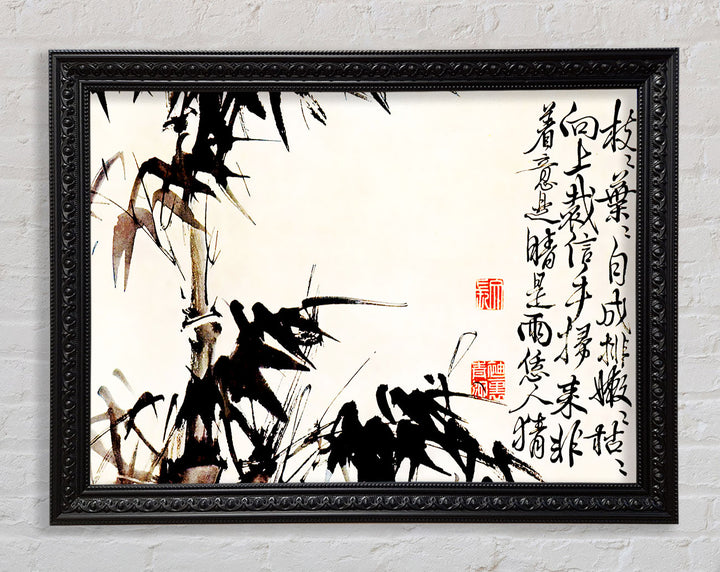 枝〻葉〻自成排嫩〻枯〻
向上栽信手掃来非
着意是晴是雨恁人猜